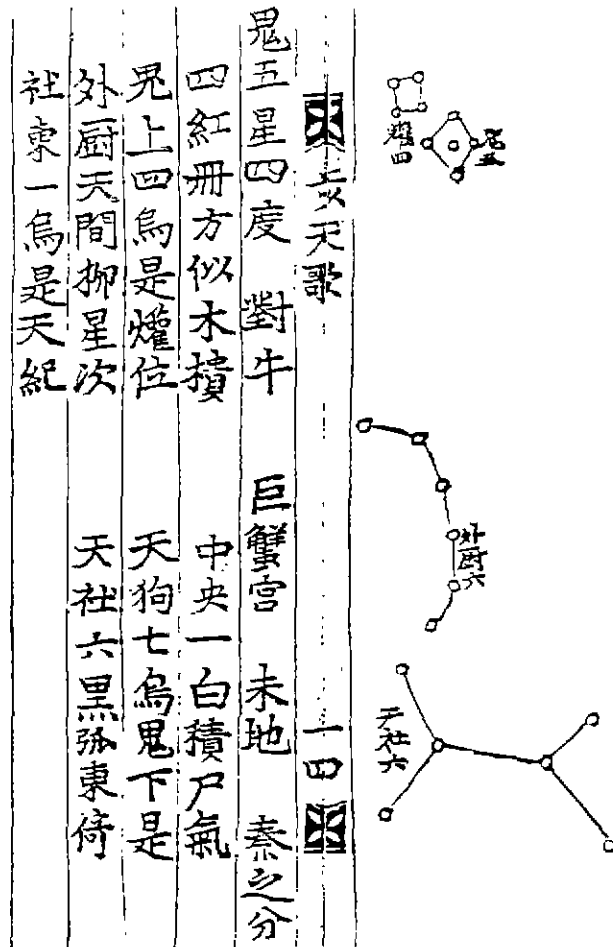 爟四
鬼五
外厨六
天社六
步天歌 一四
鬼五星四度 對牛 巨蟹宮 未地 秦之分
四紅冊方似木樻 中央一白積尸氣
鬼上四烏是爟位 天狗七烏鬼下是
外厨天間柳星次 天社六黑弧東倚
社東一烏是天紀